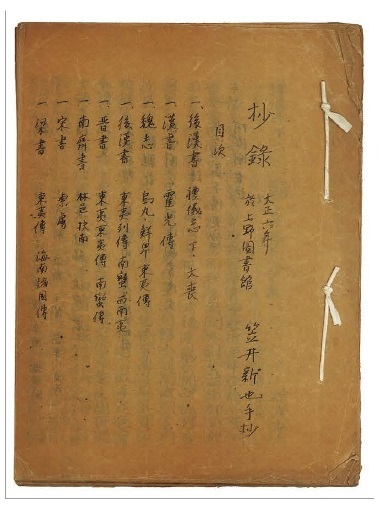 抄錄
大正六年
於上野圖書館 笠井新也手抄
目次
一、後漢書 禮儀志下、大喪
一 漢書 霍光傳
一、魏志 烏丸、鮮卑、東夷傳
一、後漢書 東夷列傳 南蠻 西南夷
一 晋書 東夷東夷傳 南蠻傳
一 南齊書 林邑扶南
一 宋書 東夷
一 梁書 東夷傳 海南諸國傳